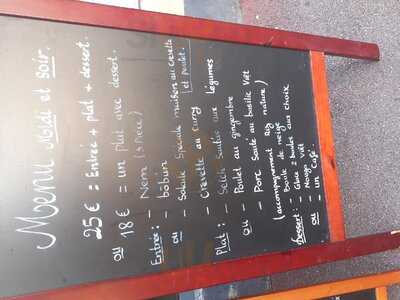 Menu Midi et Soir.
25 € = Entrée + plat + dessert.
ou
18 € = un plat avec dessert.
Entrée : - Nem (4 Pièce)
- bobun
ou - Salade Spéciale maison au crevette
(et poulet.
- Crevette au curry
Plat : - Seich Sautée aux Légumes
- Poulet au gingembre
ou - Porc Sauté au basilic Viêt
(accompagnement Riz nature)
dessert - Boule de neige
- Glace 2 boules aux choix
- Nouga Viêt
ou - un Café